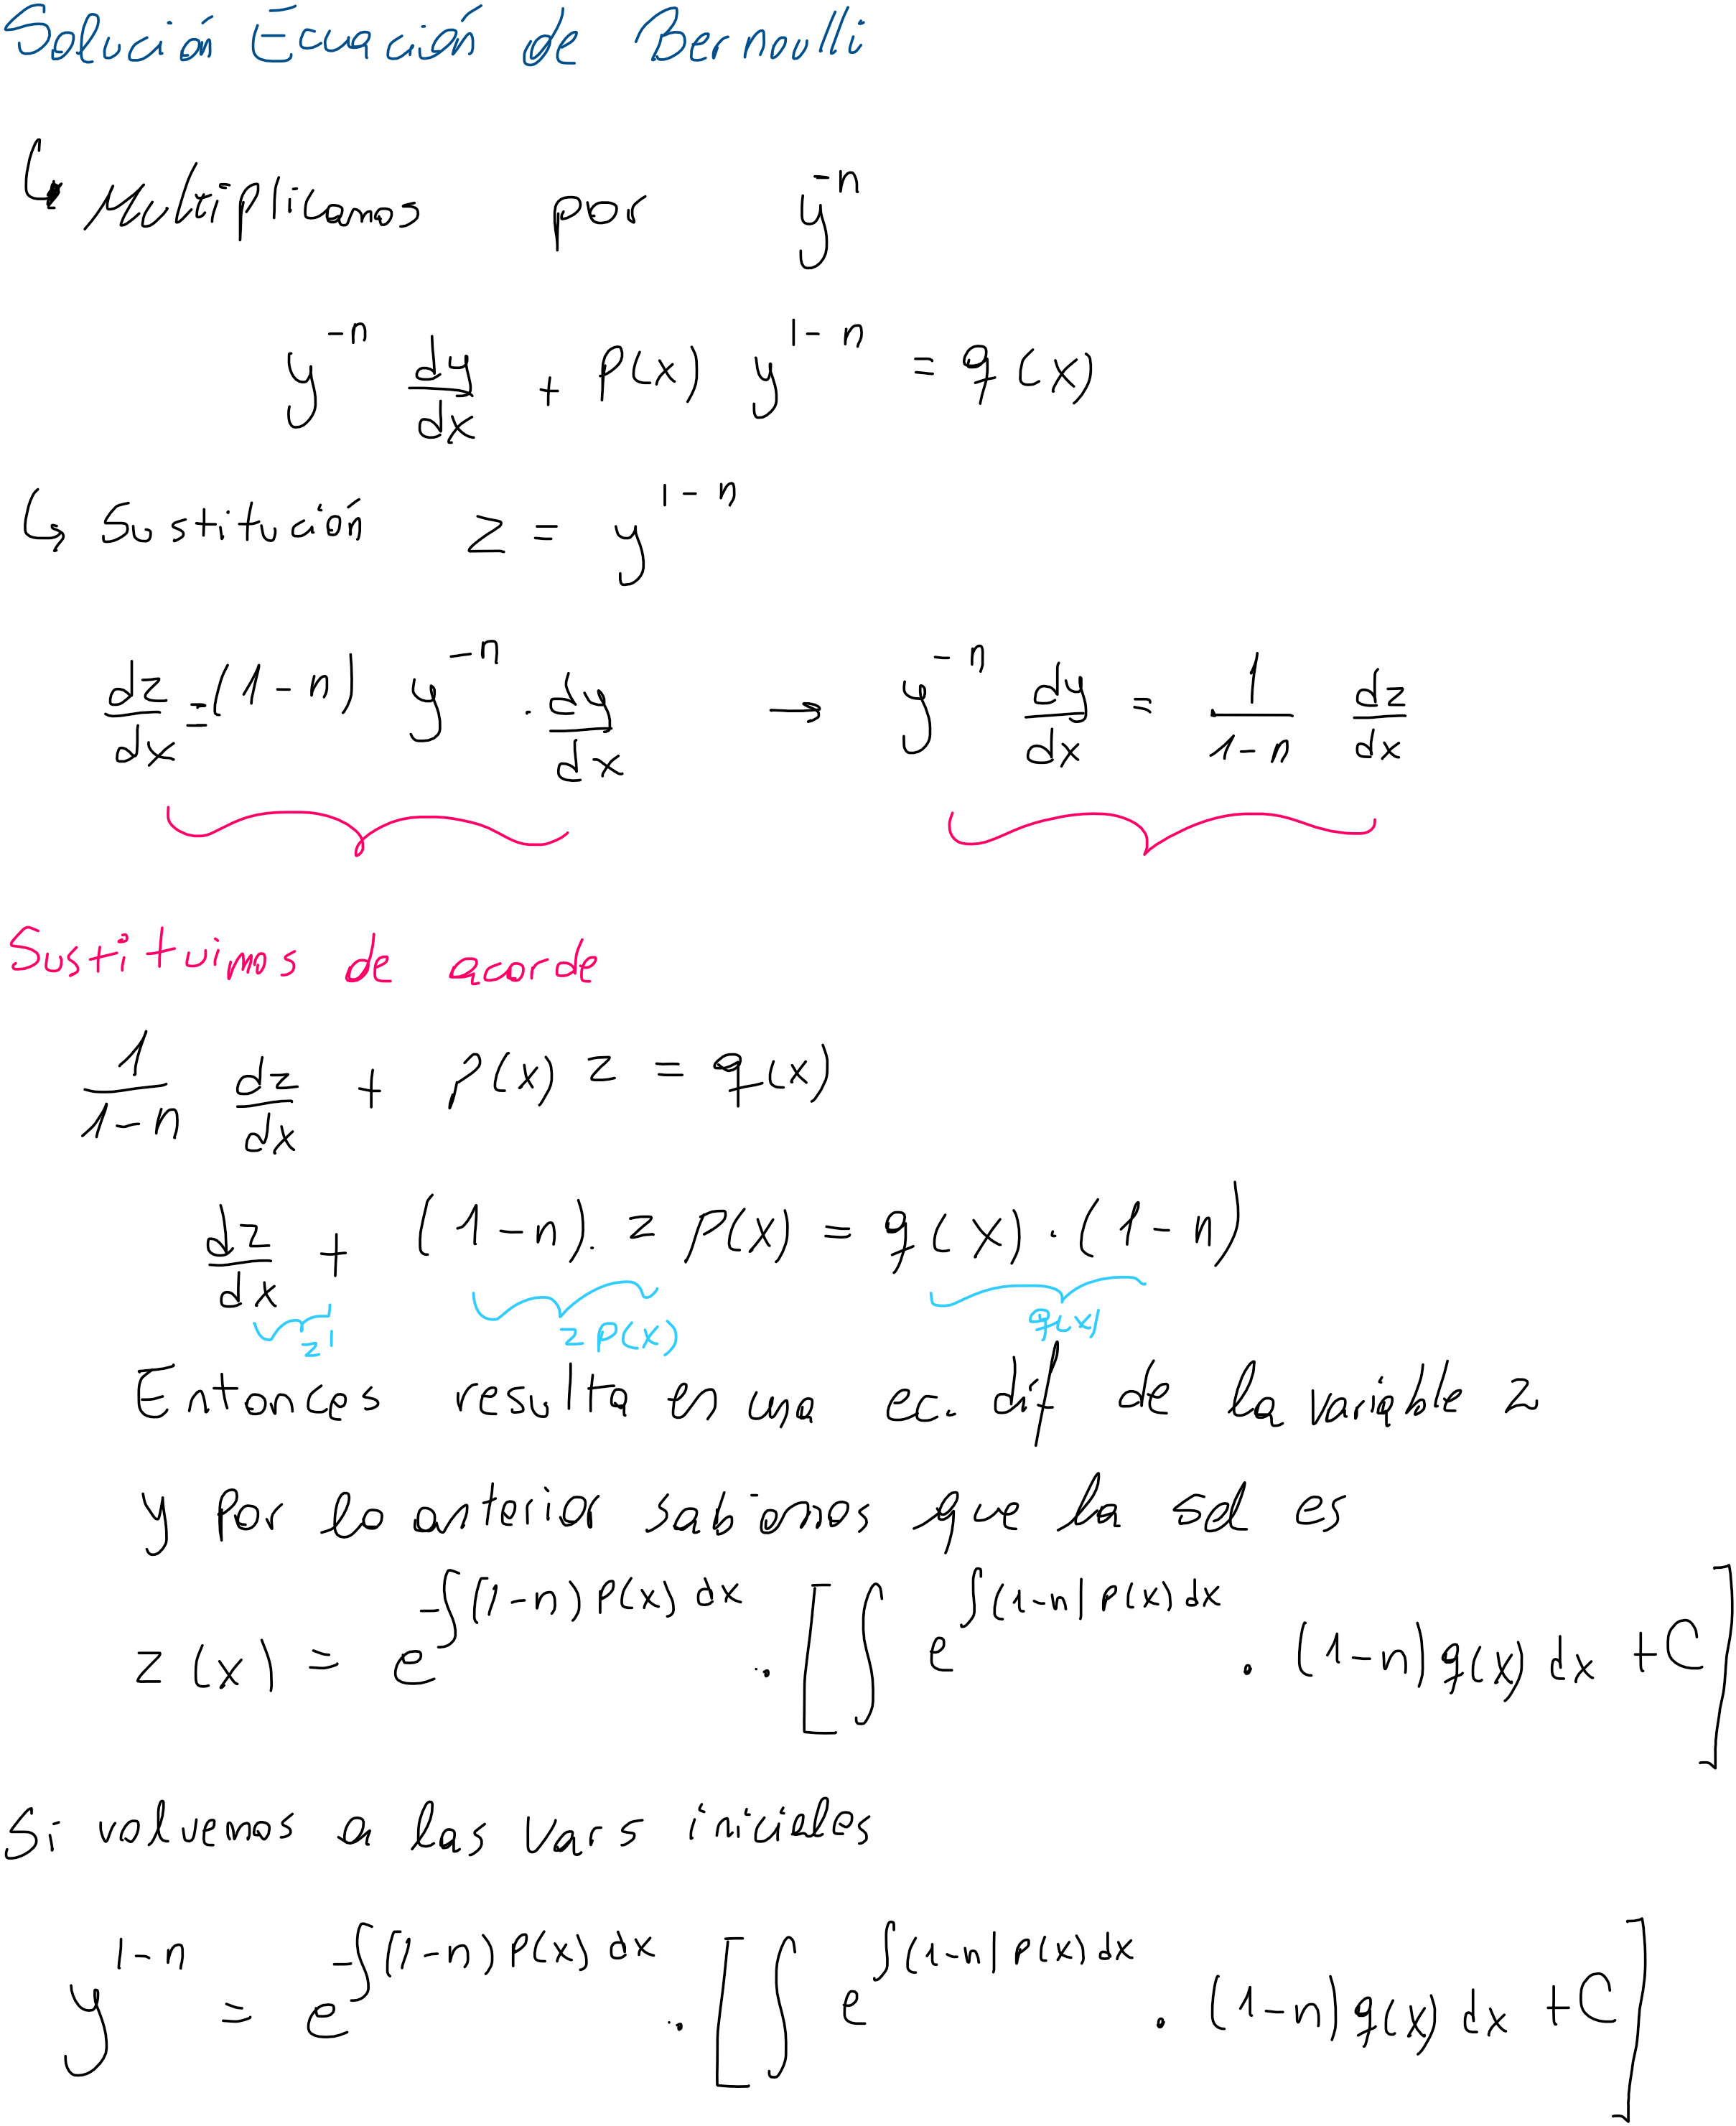 Solución Ecuación de Bernoulli
↳ Multiplicamos por y^{-n}
y^{-n} dy/dx + P(x) y^{1-n} = q(x)
↳ Sustitución z = y^{1-n}
dz/dx = (1-n) y^{-n} · dy/dx → y^{-n} dy/dx = 1/(1-n) dz/dx
Sustituimos de acorde
1/(1-n) dz/dx + P(x) z = q(x)
dz/dx + (1-n) · z P(x) = q(x) · (1-n)
z' z P(x) q(x)
Entonces resulta en una ec. dif de la variable z
y por lo anterior sabemos que la sol es
z(x) = e^{-∫(1-n) P(x) dx} · [∫ e^{∫(1-n) P(x) dx} · (1-n) q(x) dx + C]
Si volvemos a las vars iniciales
y^{1-n} = e^{-∫(1-n) P(x) dx} · [∫ e^{∫(1-n) P(x) dx} · (1-n) q(x) dx + C]